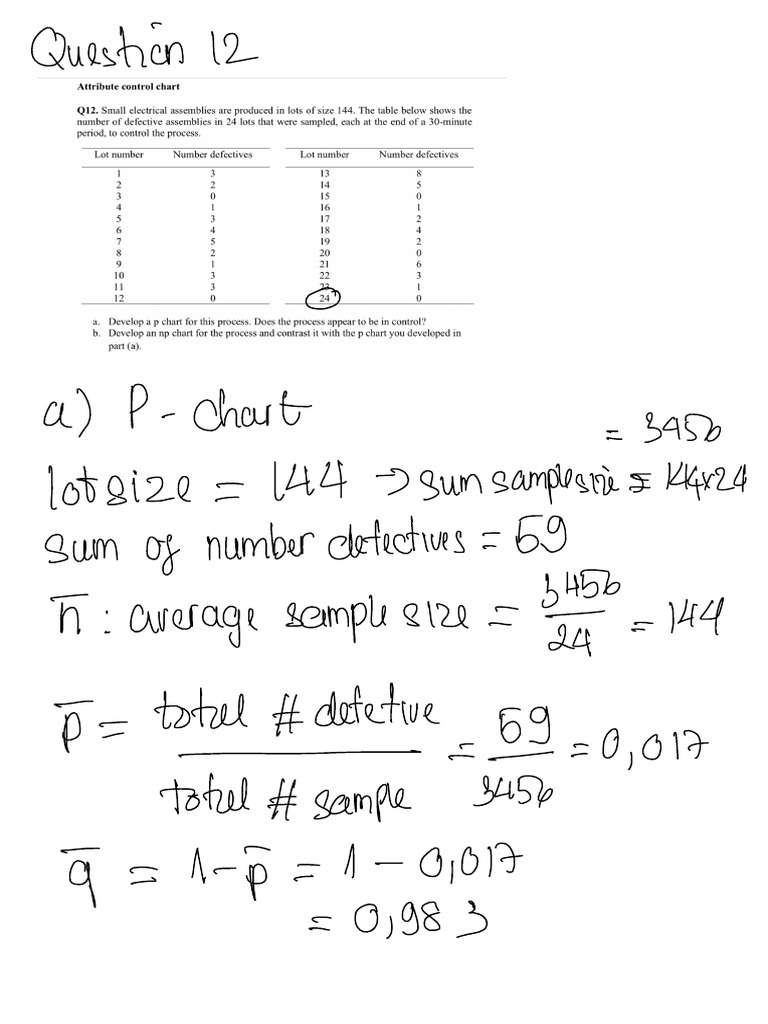 Question 12
Attribute control chart
Q12. Small electrical assemblies are produced in lots of size 144. The table below shows the
number of defective assemblies in 24 lots that were sampled, each at the end of a 30-minute
period, to control the process.
Lot number Number defectives Lot number Number defectives
1 3 13 8
2 2 14 5
3 0 15 0
4 1 16 1
5 3 17 2
6 4 18 4
7 5 19 2
8 2 20 0
9 1 21 6
10 3 22 3
11 3 23 1
12 0 24 0
a. Develop a p chart for this process. Does the process appear to be in control?
b. Develop an np chart for the process and contrast it with the p chart you developed in
part (a).
a) P - chart
= 3456
lot size = 144 → sum sample size = 144x24
sum of number defectives = 59
n̅ : average sample size = 3456/24 = 144
p̅ = total # defetive / total # sample = 59/3456 = 0,017
q̅ = 1-p̅ = 1 - 0,017
= 0,983